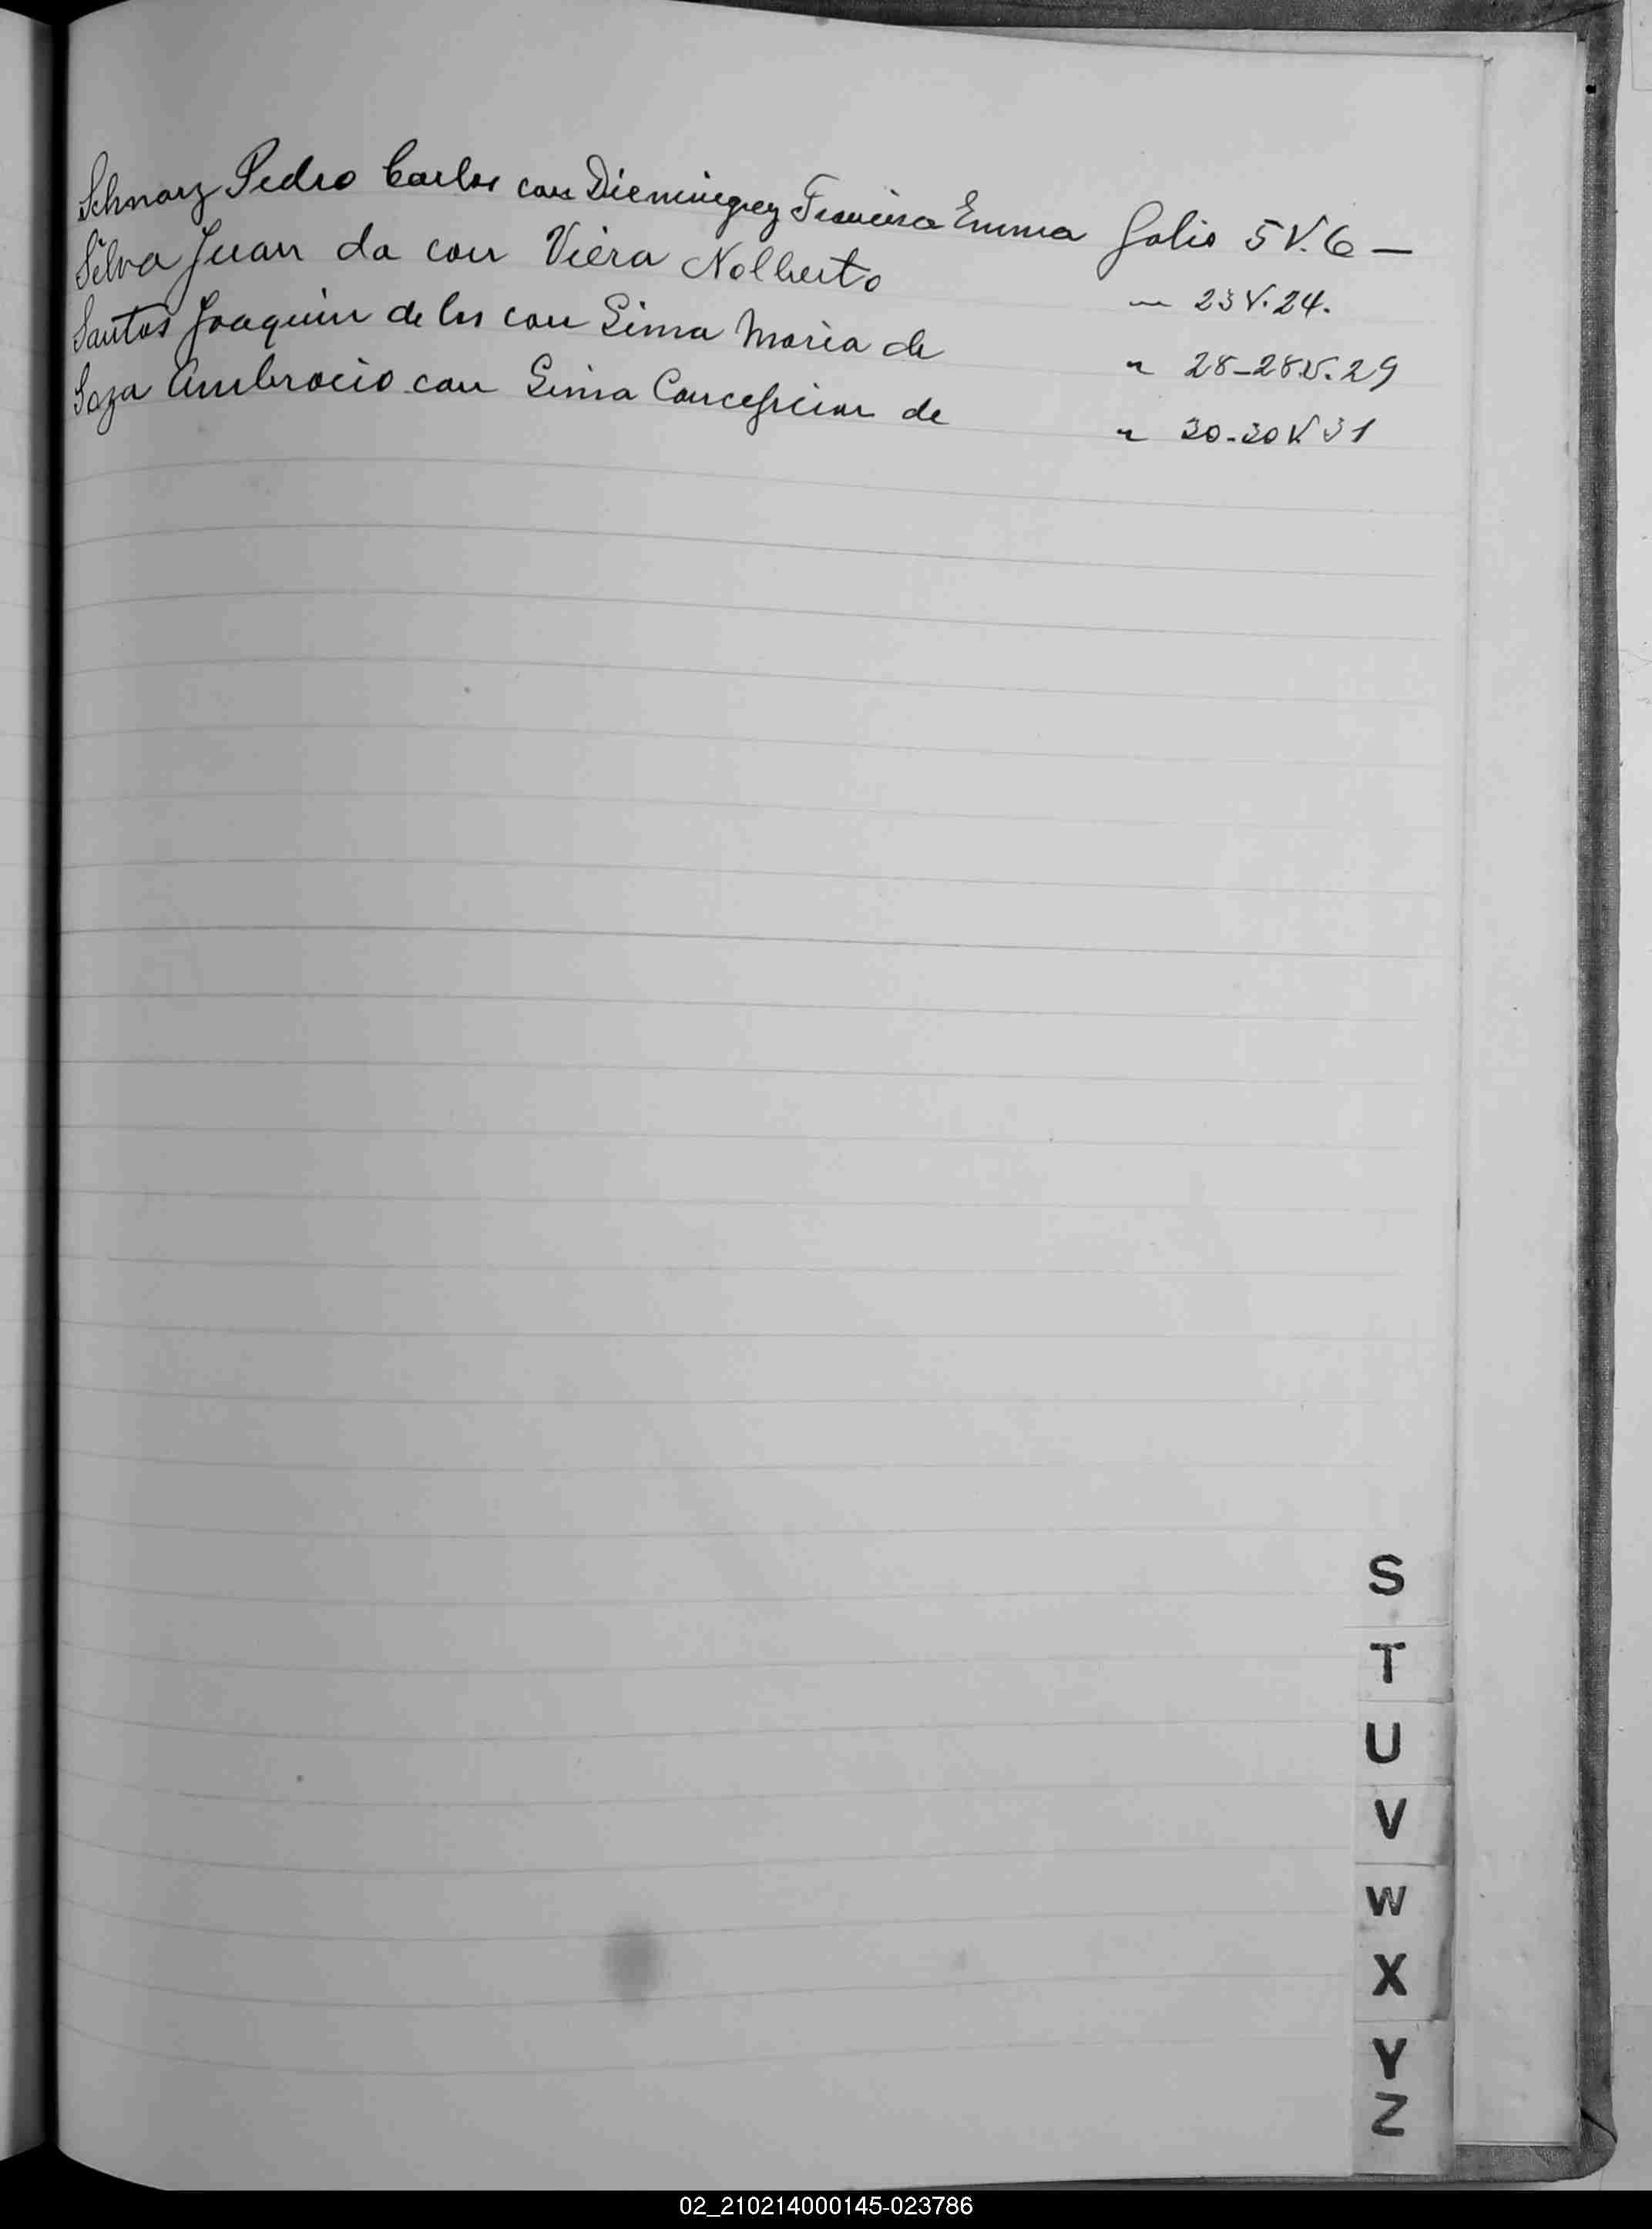 Schnarz Pedro Carlos con Diemingrey Francisca Emma folio 5 V. 6 —
Silva Juan da con Viera Nolberto " 23 V. 24.
Santos Joaquin de los con Lima Maria de " 28-28 V. 29
Soza Ambrocio con Lima Concepcion de " 30-30 V 31
S
T
U
V
W
X
Y
Z
02_210214000145-023786